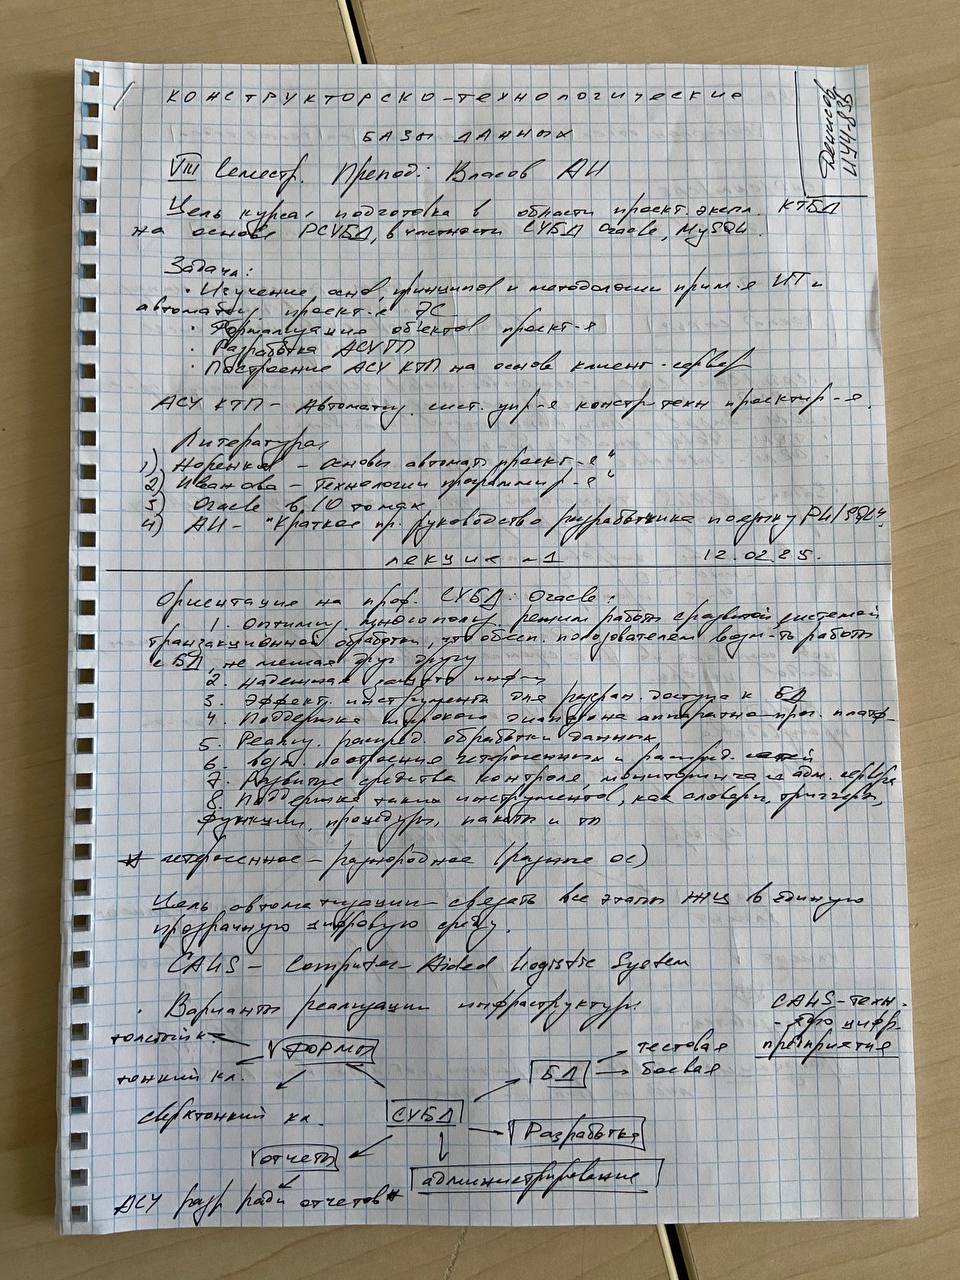 КОНСТРУКТОРСКО-ТЕХНОЛОГИЧЕСКИЕ
БАЗЫ ДАННЫХ
Денисов
ИУ4-83Б
VIII Семестр. Препод: Власов АИ
Цель курса: подготовка в области проект. экспл. КТБД
на основе РСУБД, в частности СУБД Oracle, MySQL.
Задачи:
· Изучение основ, принципов и методологии прим-я ИТ и
автоматиз. проект-я ЭС
· Формализация объектов проект-я
· Разработка АСУТП
· Построение АСУ КТП на основе клиент-сервер
АСУ КТП - Автоматиз. сист. упр-я констр-техн проектир-я.
Литература:
1) Норенков - Основы автомат. проект-я"
2) Иванова - Технологии программир-я"
3) Oracle в 10 томах
4) АИ - "Краткое пр. руководство разработчика по языку PL/SQL"
Лекция ~1 12.02.25.
Ориентация на проф. СУБД: Oracle:
1. Оптимиз. многопольз. режим работы с развитой системой
транзакционной обработки, что обесп. пользователем возм-ть работы
с БД, не мешая друг другу
2. Надежная защита инф-и
3. Эффект. инструменты для разгран. доступа к БД
4. Поддержка широкого диапазона аппаратно-прог. платф-
5. Реализ. распред. обработки данных
6. Возм. построения гетерогенных и распред. сетей
7. Развитые средства контроля мониторинга и адм. сервера
8. Поддержка таких инструментов, как словари, триггеры,
функции, процедуры, пакеты и тп
* гетерогенное - разнородное (разные ос)
Цель автоматизации - связать все этапы ЖЦ в единую
прозрачную цифровую среду.
CALS - Computer-Aided Logistic System
· Варианты реализации инфраструктуры:
CALS-техн.
- ядро цифр.
предприятия
толстый к.
ФОРМЫ
тонкий кл.
сверхтонкий кл.
БД
тестовая
боевая
СУБД
Разработка
отчеты
администрирование
АСУ разр ради отчетов*